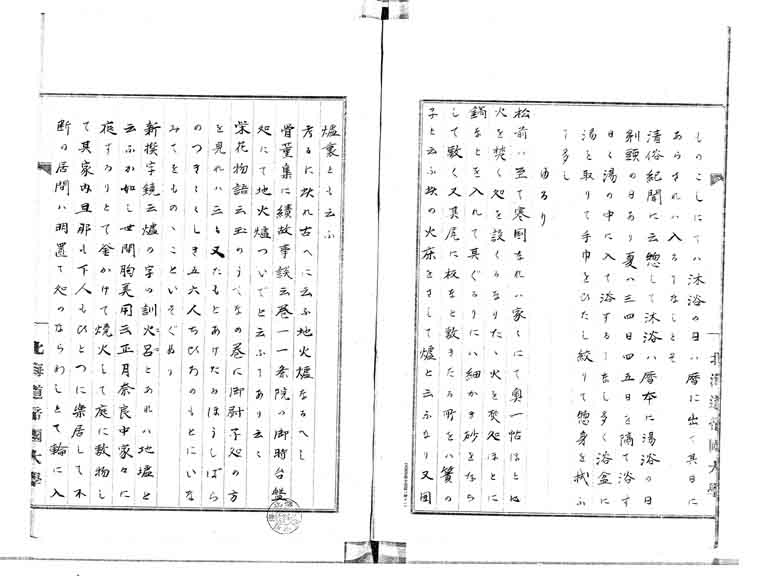 ものこしにてハ沐浴の日ハ暦に出て其日に
あらされハ入るヿなしとそ
清俗紀聞に云惣して沐浴ハ暦本に湯浴の日
剃頭の日あり夏ハ三四日四五日を隔て浴す
日々湯の中に入て浴するヿなし多く浴盒に
湯を取りて手巾をひたし絞りて惣身を拭ふ
ヿ多し
ゆるり
松前ハ至て寒国なれハ家々にて奥一帖ほとに
火を焚く処を設くるなりたゝ火を焚処ほとに
鍋なとを入れて其ぐるりにハ細かき砂をなら
して敷く又其尾に板なと敷きたる所をハ簀の
子と云ふ坎の火床をさして爐と云ふなり又囲
爐裏とも云ふ
考るに坎れ古へに云ふ地火爐なるへし
骨董集に続故事談云巻一一条院の御時台盤
処にて地火爐ついでと云ふヿあり云々
栄花物語云玉のうてなの巻に御尉子処の方
を見れハ三ツ又たもとあけたるほうしばら
のつき〳〵しき五六人ちひろのもとにいな
みてをものゝこといそぐめり
新撰字鏡云爐の字の訓火呂とあれハ地爐と
云ふか如し世間胸算用云正月奈良中家々に
庭ゐろりとて釜かけて焼火して庭に敷物し
て其家内旦那も下人もひとつに楽居して不
断の居間ハ明置て処のならわしとて輪に入
北海道帝國大學
北海道帝國大學